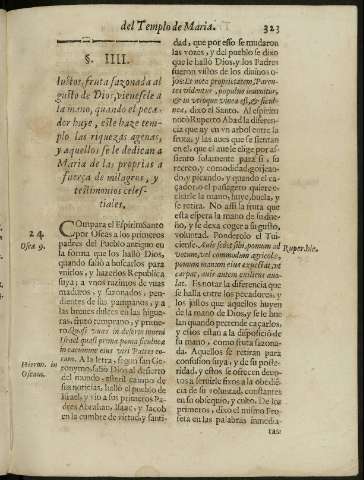 del Templo de Maria.
323
§. IIII.
Iustos, fruta sazonada al
gusto de Dios, vienesele a
la mano, quando el peca-
dor huye, este haze tem-
plo las riquezas agenas,
y aquellos se le dedican a
Maria de las proprias a
fuerça de milagros, y
testimonios celes-
tiales.
24
Osea 9.
COmpara el EspirituSanto
por Oseas a los primeros
padres del Pueblo antiguo en
la forma que los hallò Dios,
quando saliò a buscarlos para
vnirlos, y hazerlos Republica
suya; a vnos razimos de vuas
maduros, y sazonados, pen-
dientes de sus pampanos, y a
las breuas dulces en las higue-
ras, fruto temprano, y prime-
ro: Quasi vuas in deserto inueni
Israel: quasi prima poma ficulnea
in cacumine eius vidi Patres eo-
rum. A la letra, segun san Ge-
ronymo, saliò Dios al desierto
del mundo, esteril campo de
sus noticias, hallò el pueblo de
Israel, y viò a sus primeros Pa-
dres Abrahan, Isaac, y Iacob
en la cumbre de virtud, y santi-
Hieron. in
Oseam.
dad, que por esso se mudaron
las vozes, y del pueblo se dixo
que le hallò Dios, y los Padres
fueron vistos de los diuinos o-
jos:
dixo el Santo. Al espiritu
noto Ruperto Abad la diferen-
cia que ay en vn arbol entre la
fruta, y las aues que se sientan
en el, que el auele elige por as-
siento solamente para si, su
recreo, y comodidad, gorjean-
do, y picando, y quando el ca-
çador, o el passagero quiere e-
charle la mano, huye, buela, y
se retira. No assi la fruta que
esta espera la mano de su due-
ño, y se dexa coger a su gusto,
voluntad. Ponderolo el Tui-
ciense. Auis sedet sibi, pomum ad
vetum, vel commodum agricola,
pomum manum eius expectat, vt
carpat, auis autem eminus auo-
lat. Es notar la diferencia que
se halla entre los pecadores, y
los justos que aquellos huyen
de la mano de Dios, y se le van
quando pretende caçarlos, y
estos estan a la disposició de
su mano, como fruta sazona-
da. Aquellos se retiran para
confusion suya, y de su poste-
ridad, y estos se ofrecen deuo-
tos a seruirle fixos a la obedié-
cia de su voluntad, constantes
en su obsequio, y culto. De los
primeros, dixo el mismo Pro-
feta en las palabras inmedia-
tas:
Ruper. hic.